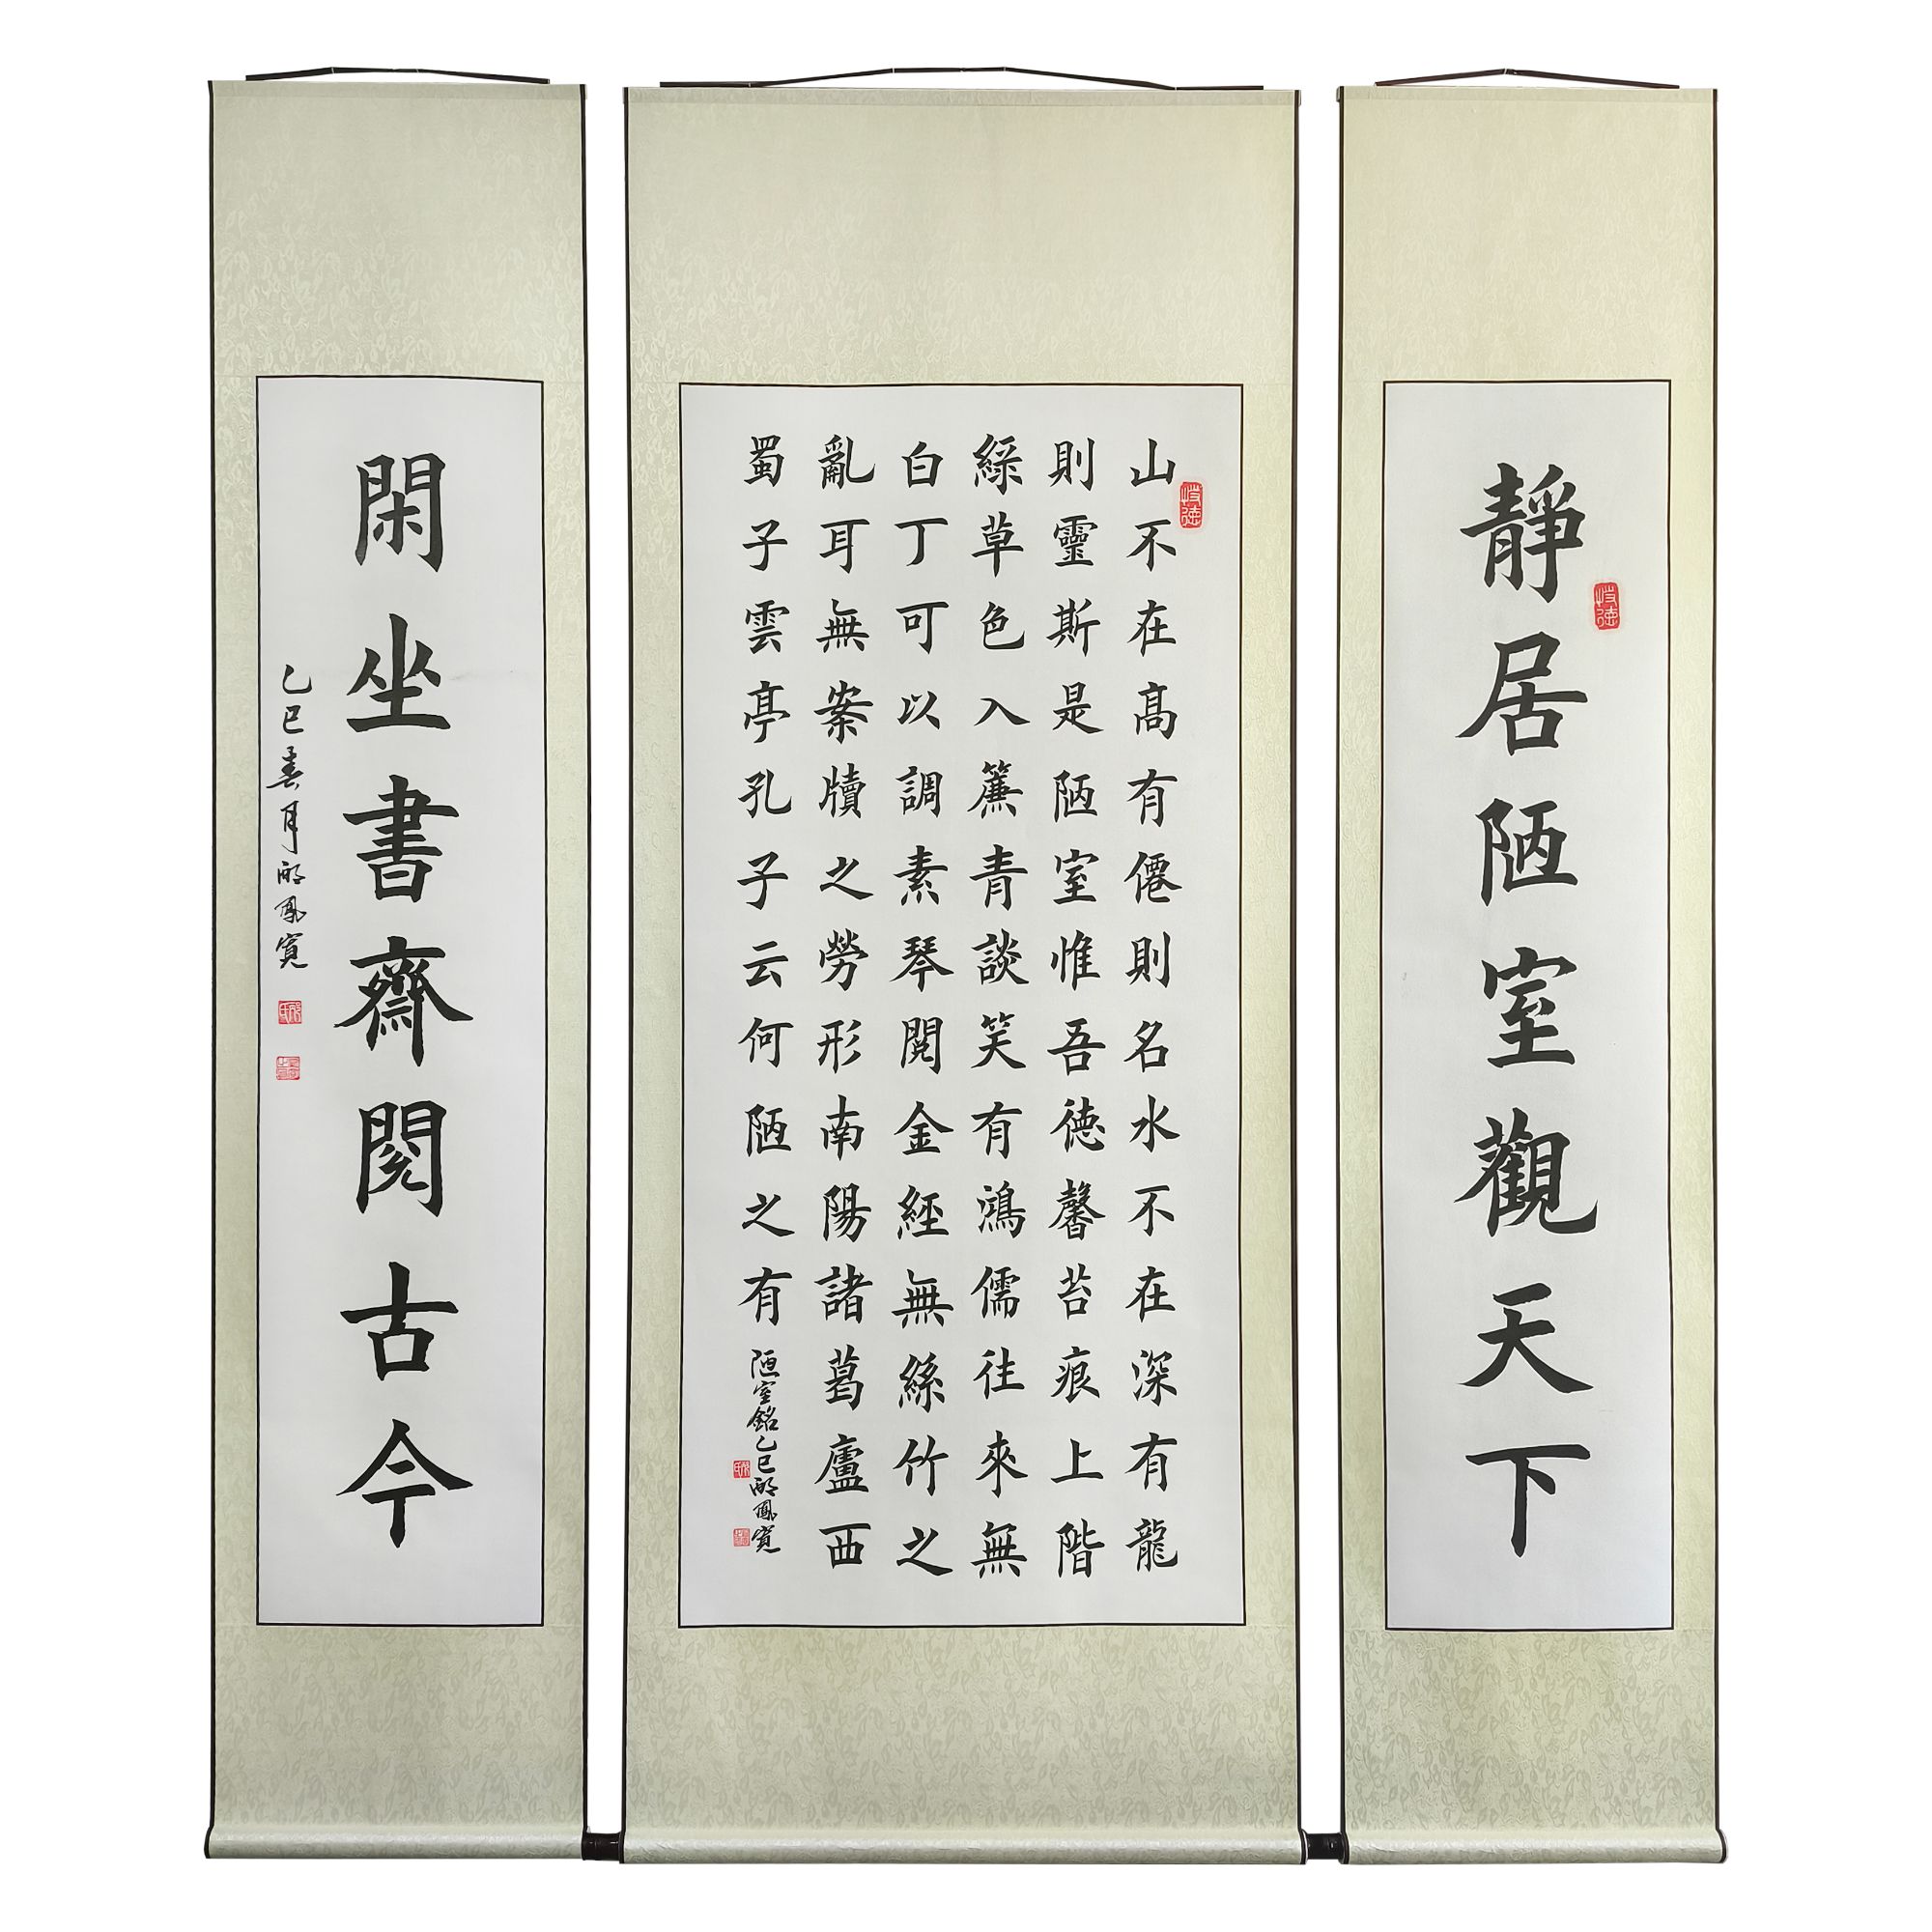 靜居陋室觀天下
山不在高有僊則名水不在深有龍
則靈斯是陋室惟吾徳馨苔痕上階
綵草色入簾青談笑有鴻儒往來無
白丁可以調素琴閱金經無絲竹之
亂耳無案牘之勞形南陽諸葛廬西
蜀子雲亭孔子云何陋之有
陋室銘乙巳 鳳寬
閑坐書齋閱古今
乙巳春月 鳳寬